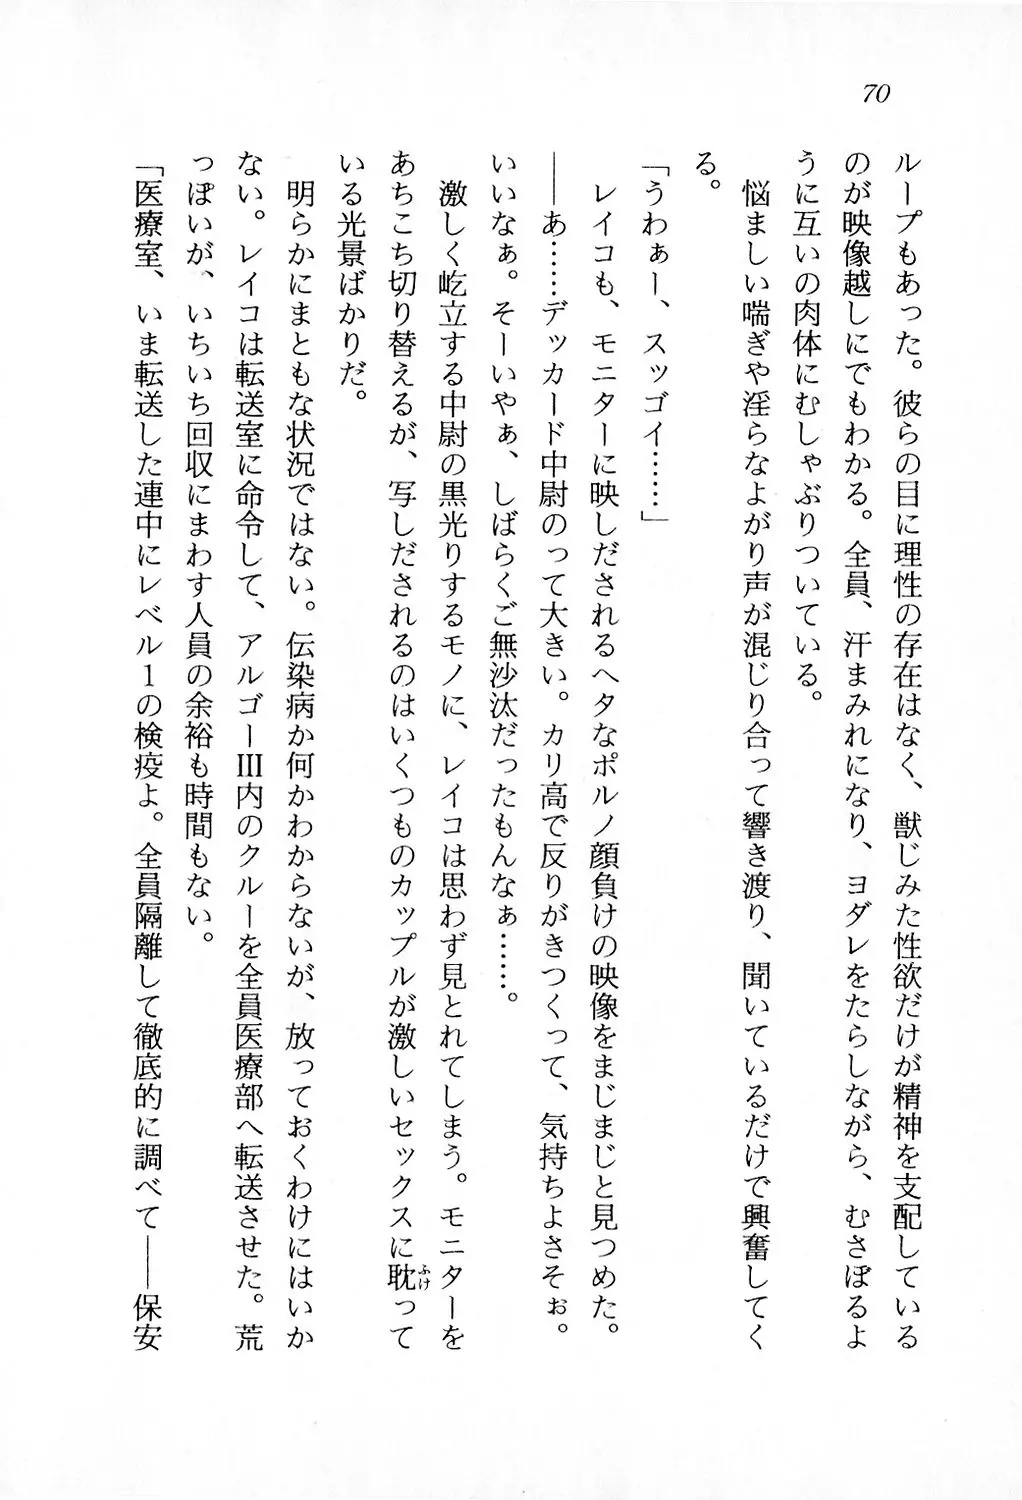 70
ループもあった。彼らの目に理性の存在はなく、獣じみた性欲だけが精神を支配している
のが映像越しにでもわかる。全員、汗まみれになり、ヨダレをたらしながら、むさぼるよ
うに互いの肉体にむしゃぶりついている。
　悩ましい喘ぎや淫らなよがり声が混じり合って響き渡り、聞いているだけで興奮してく
る。
「うわぁー、スッゴイ……」
　レイコも、モニターに映しだされるヘタなポルノ顔負けの映像をまじまじと見つめた。
――あ……デッカード中尉のって大きい。カリ高で反りがきつくって、気持ちよさそぉ。
いいなぁ。そーいやぁ、しばらくご無沙汰だったもんなぁ……。
　激しく屹立する中尉の黒光りするモノに、レイコは思わず見とれてしまう。モニターを
あちこち切り替えるが、写しだされるのはいくつものカップルが激しいセックスに耽ふけって
いる光景ばかりだ。
　明らかにまともな状況ではない。伝染病か何かわからないが、放っておくわけにはいか
ない。レイコは転送室に命令して、アルゴーⅢ内のクルーを全員医療部へ転送させた。荒
っぽいが、いちいち回収にまわす人員の余裕も時間もない。
「医療室、いま転送した連中にレベル１の検疫よ。全員隔離して徹底的に調べて――保安